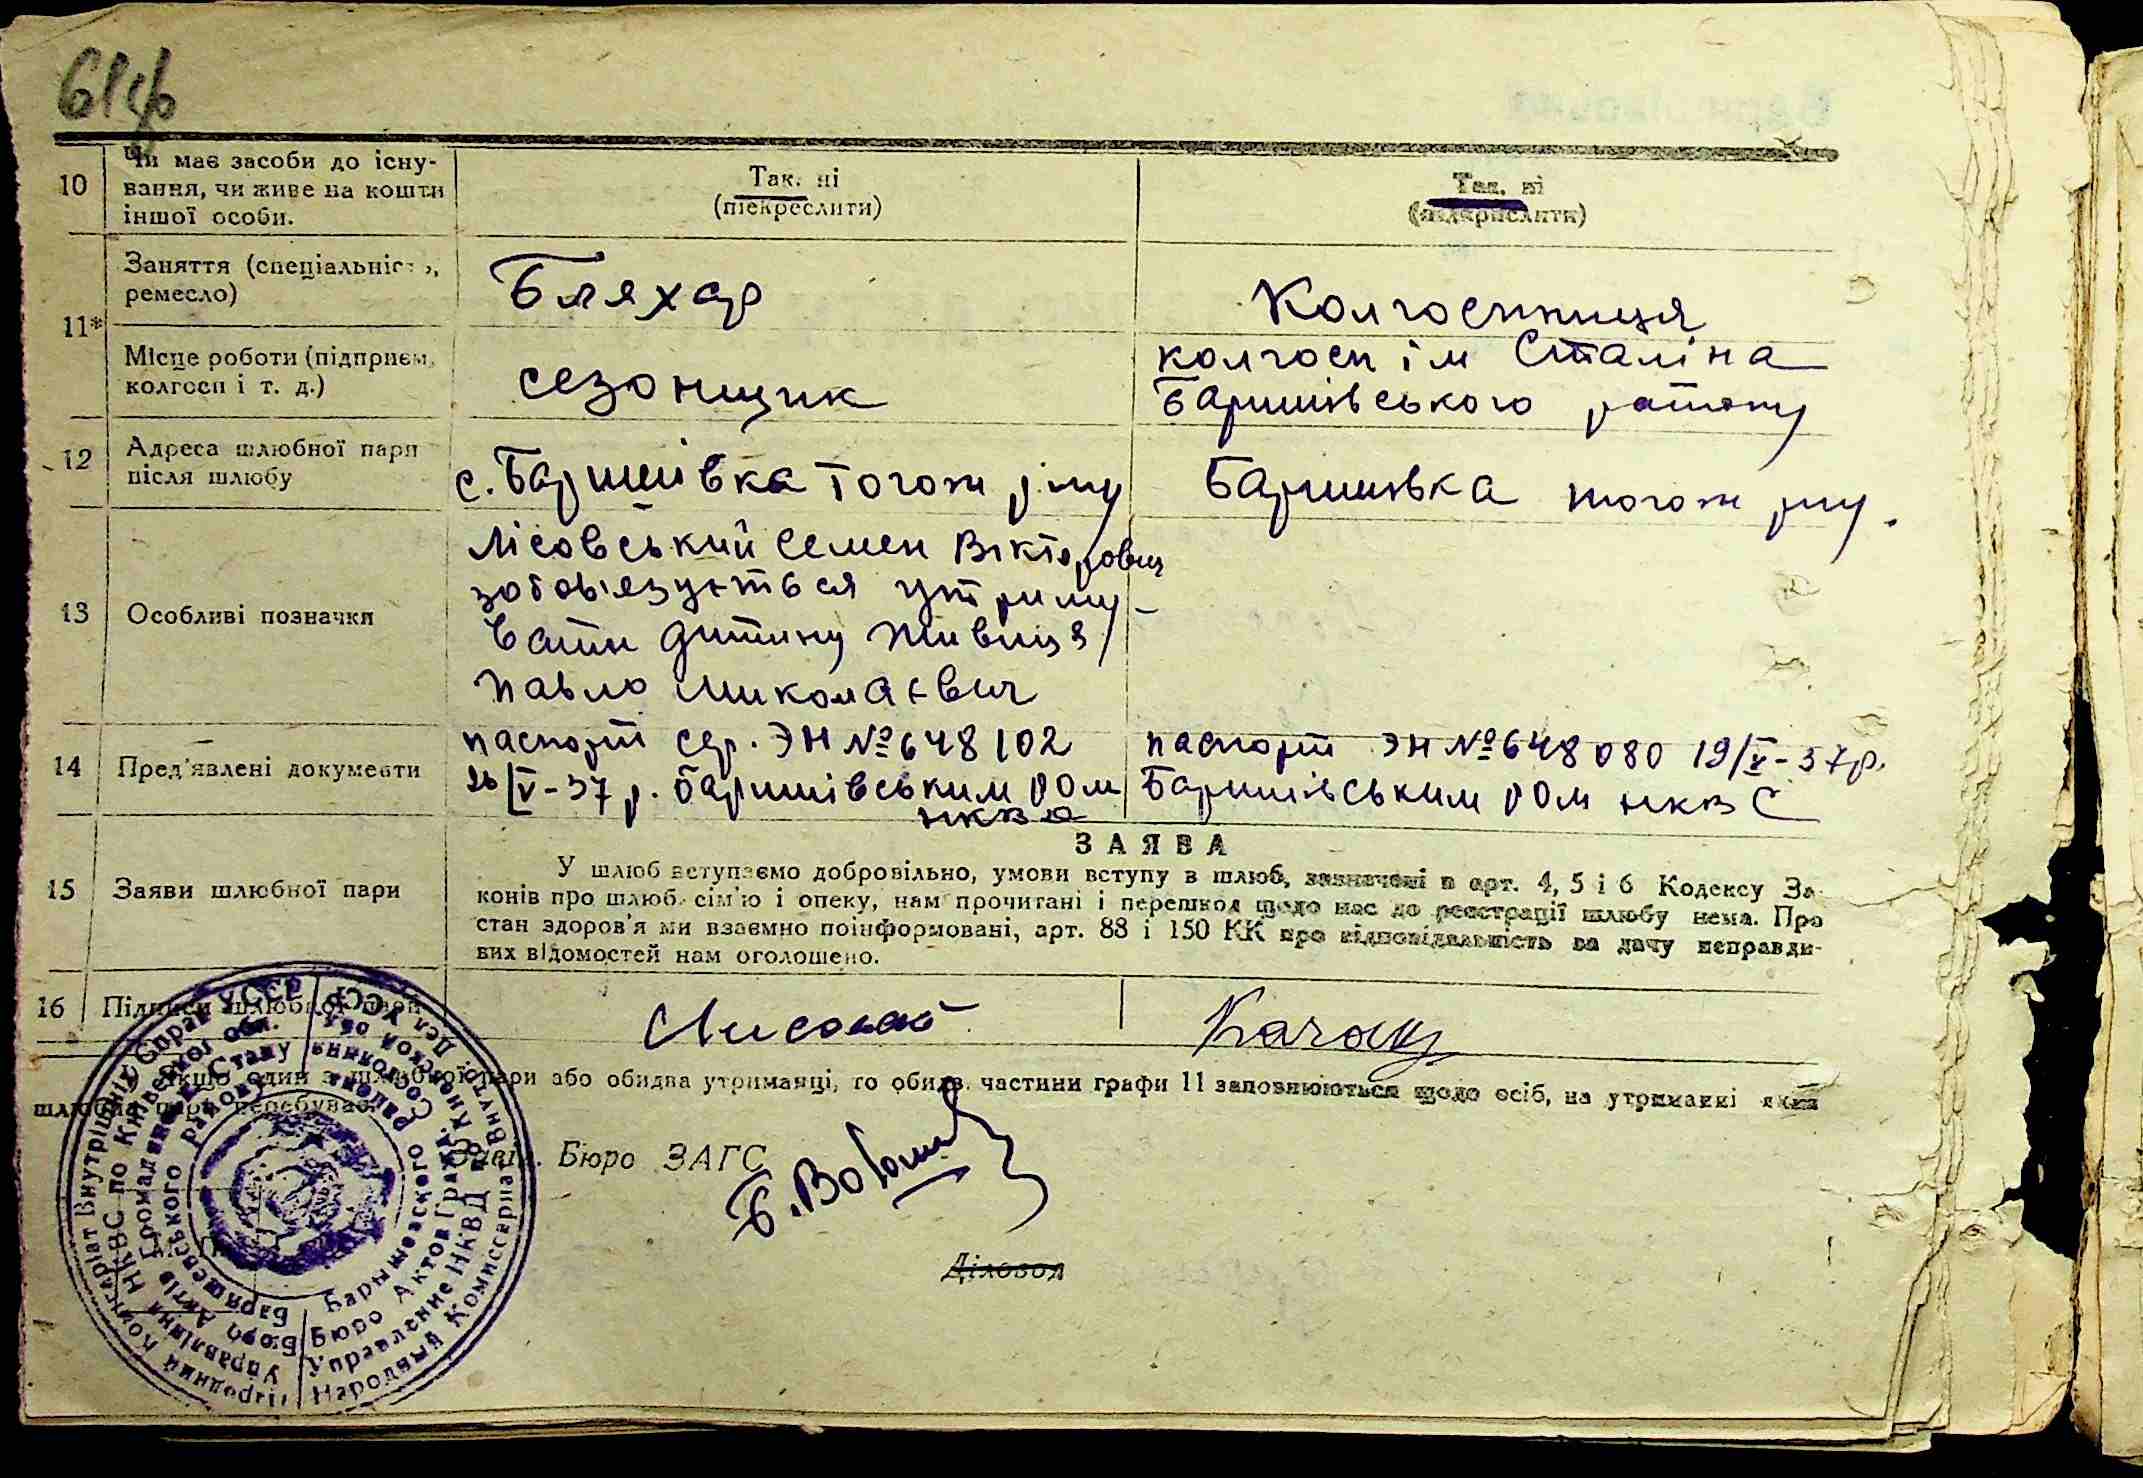 10
Чи має засоби до існу-
вання, чи живе на кошти
іншої особи.
Так. ні
(підкреслити)
Так. ні
(підкреслити)
11*
Заняття (спеціальність,
ремесло)
Бляхар
Колгоспниця
Місце роботи (підприєм.
колгосп і т. д.)
сезонщик
колгосп ім Сталіна
Баришівського району
12
Адреса шлюбної пари
після шлюбу
с. Баришівка тогож р-ну
Баришівка тогож р-ну.
13
Особливі позначки
Лісовський Семен Вікторович
зобов'язується утриму-
вати дитину
Павло Миколаєвич
14
Пред'явлені документи
паспорт сер. ЭН № 648102
26/V-37 р. Баришівським РОМ
НКВС
паспорт ЭН № 648080 19/V-37р.
Баришівським РОМ НКВС
ЗАЯВА
15
Заяви шлюбної пари
У шлюб вступаємо добровільно, умови вступу в шлюб, зазначені в арт. 4, 5 і 6 Кодексу За-
конів про шлюб, сім'ю і опеку, нам прочитані і перешкод щодо нас до реєстрації шлюбу нема. Про
стан здоров'я ми взаємно поінформовані, арт. 88 і 150 КК про відповідальність за дачу неправди-
вих відомостей нам оголошено.
16
Підписи шлюбної пари
Якщо один з шлюбної пари або обидва утриманці, то обидв. частини графи 11 заповнюються щодо осіб, на утриманні яких
шлюбна пара перебуває.
Зав. Бюро ЗАГС
Діловод
Народний Комісаріат Внутрішніх Справ УСРР
Управління НКВС по Київській обл.
Бюро Актів Громадянського Стану
Баришевського району
Народный Комиссариат Внутр. Дел УССР
Управление НКВД по Киевской обл.
Бюро Актов Гражд. Состояния
Барышевского района